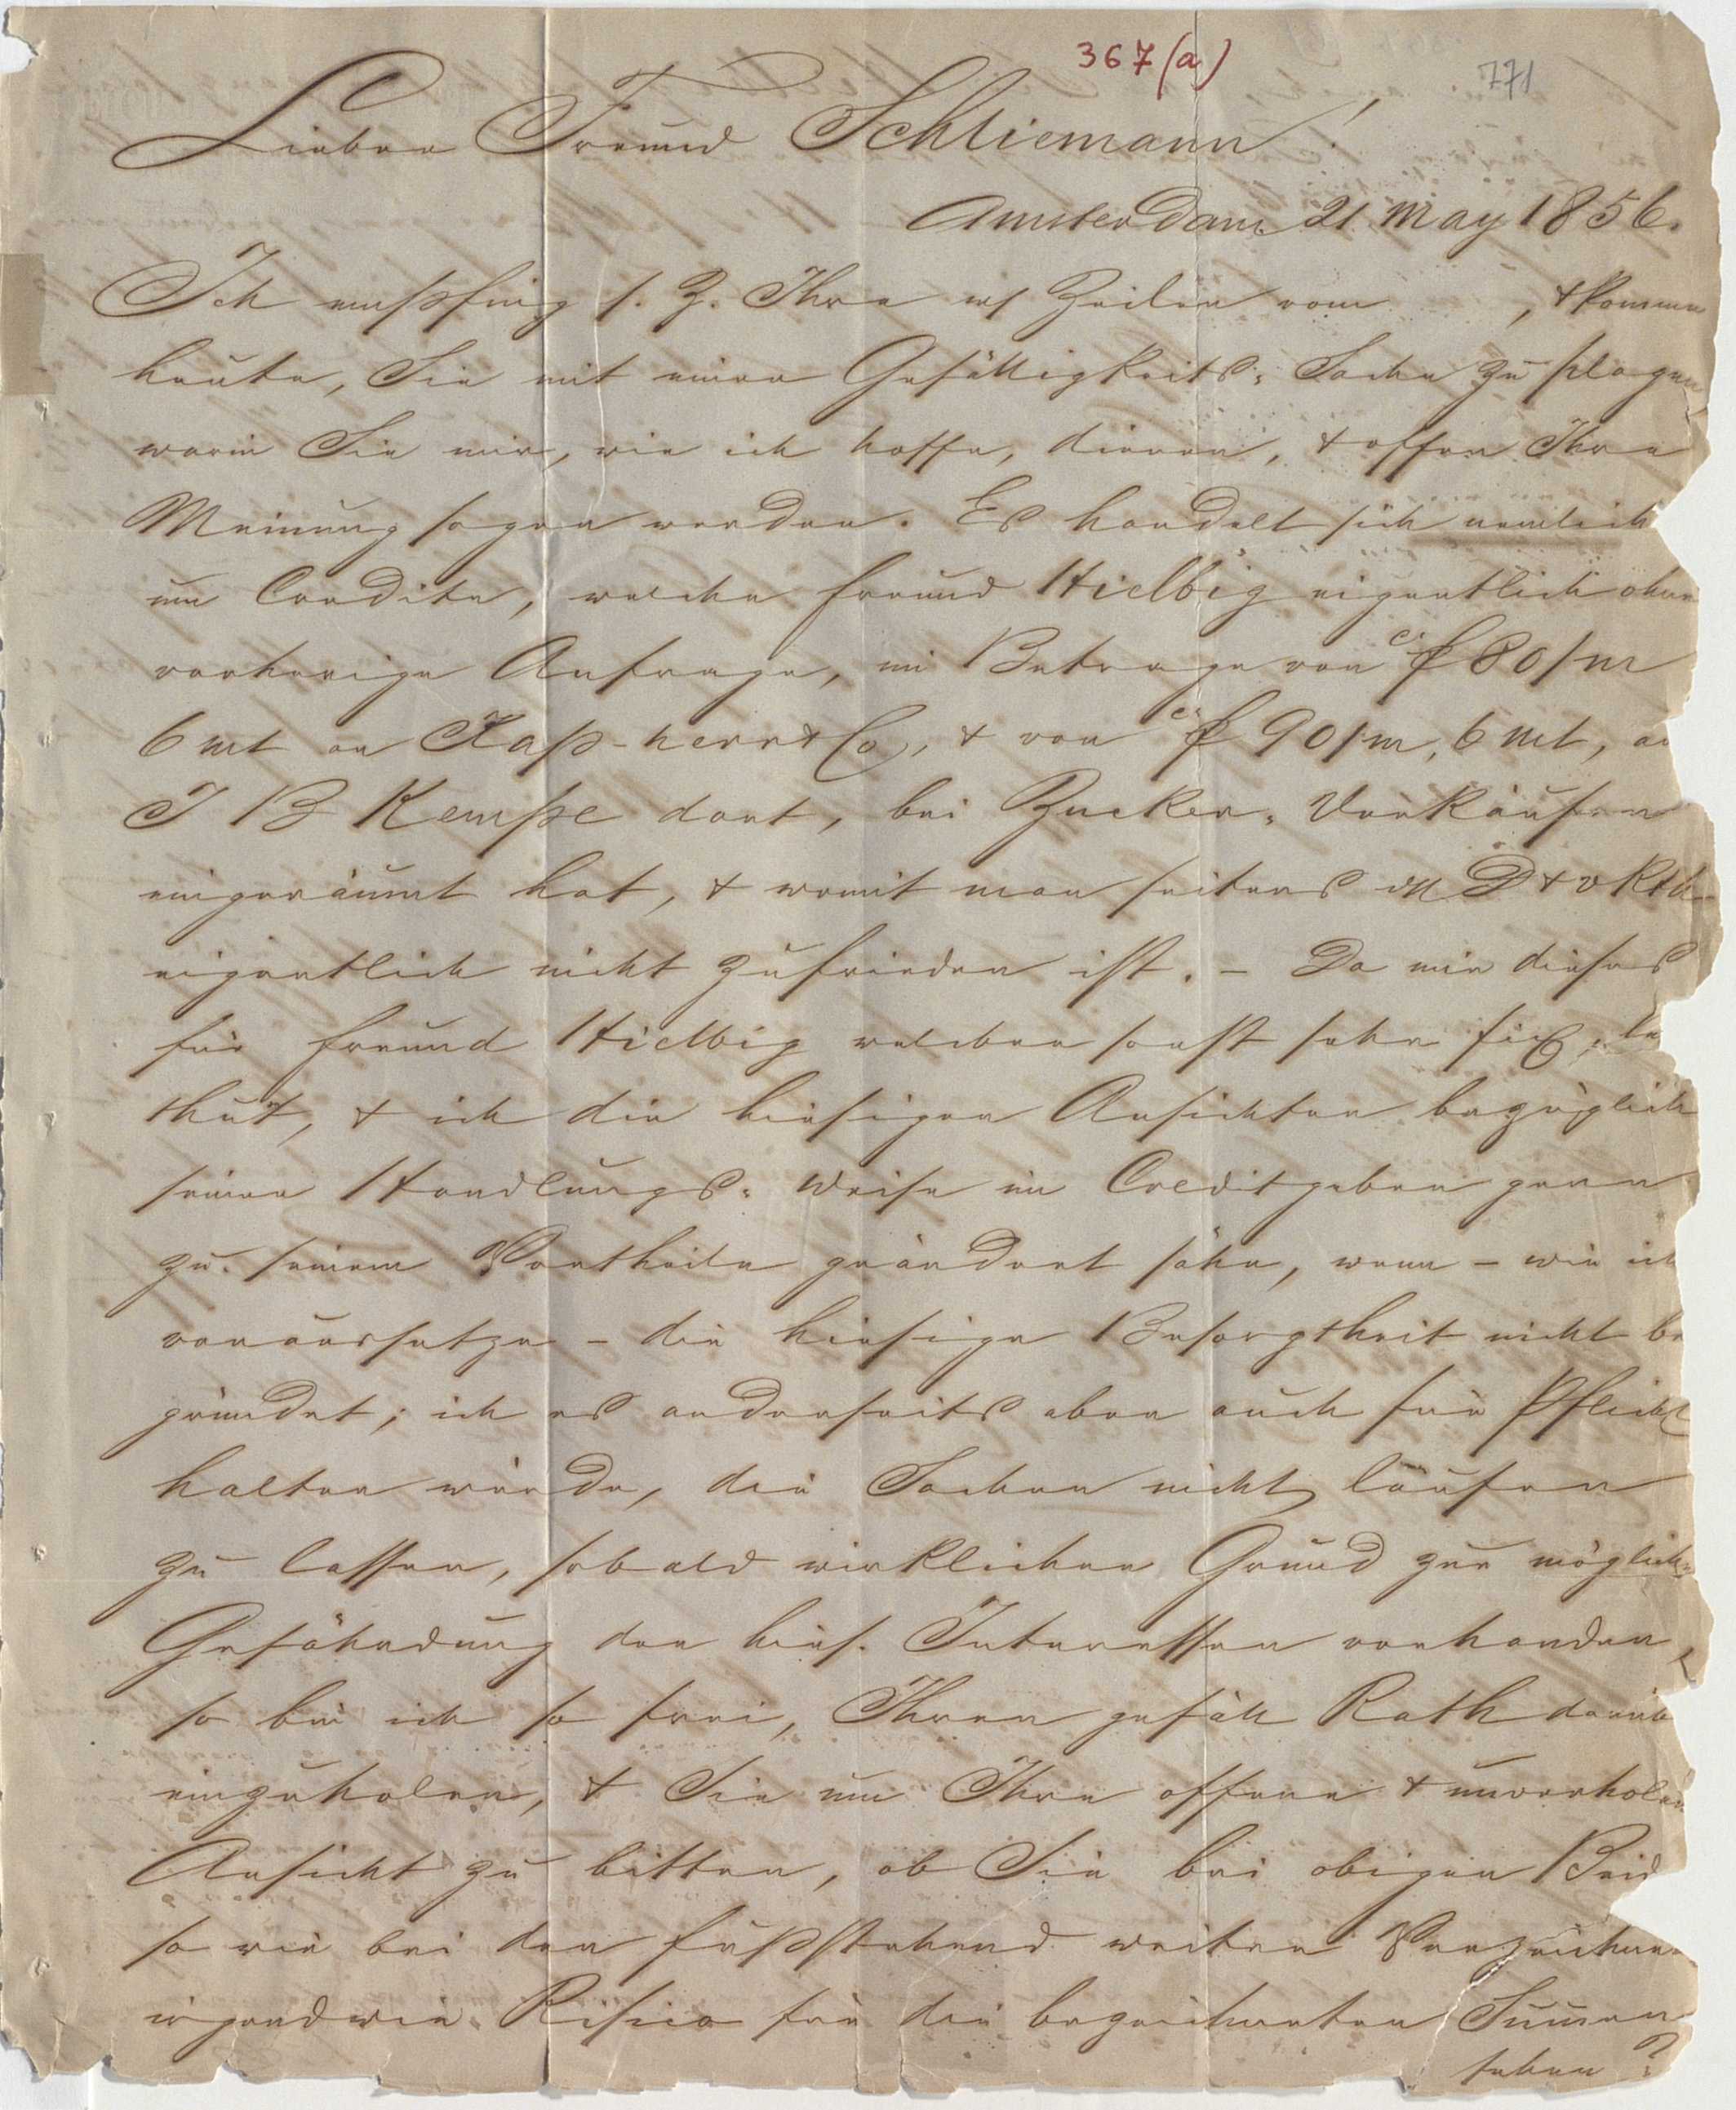 367(a)
771
Lieber Freund Schliemann!
Amsterdam 21 May 1856.
Ich empfing s. Z. Ihre Zeilen vom , + komme
heute, Sie mit einer Gefälligkeits-Sache zu plagen
worin Sie mir, wie ich hoffe, dienen, + offen Ihre
Meinung sagen werden. Es handelt sich nemlich
um Credite, welche Freund Hielbig eigentlich ohne
vorherige Anfrage, im Betrage von ca f 80/m
6 mt an Kap-herr & Co, + von ca f 90/m, 6 mt, an
J B Kempe dort, bei Zucker-Verkäufen
eingeräumt hat, + womit man seitens
eigentlich nicht zufrieden ist. - Da mir dieses
für Freund Hielbig welcher sonst sehr
thut, + ich die hiesigen Ansichten bezüglich
seiner Handlungs-Weise im Creditgeben gern
zu seinem Vortheile geändert sähe, wenn - wie ich
voraussetze - die hiesige Besorgtheit nicht be
gründet; ich es anderseits aber auch für Pflicht
halten würde, die Sachen nicht laüfen
zu lassen, sobald wirklicher Grund zur möglichen
Gefährdung der hies. Interessen vorhanden,
so bin ich so frei, Ihren gefäll Rath darüb
einzuholen, + Sie um Ihre offene + unverholene
Ansicht zu bitten, ob Sie bei obigen Beid
so wie bei den fußstehend weiter Verzeichneten
irgendwie Risico für die bezeichneten Summen
sehen?